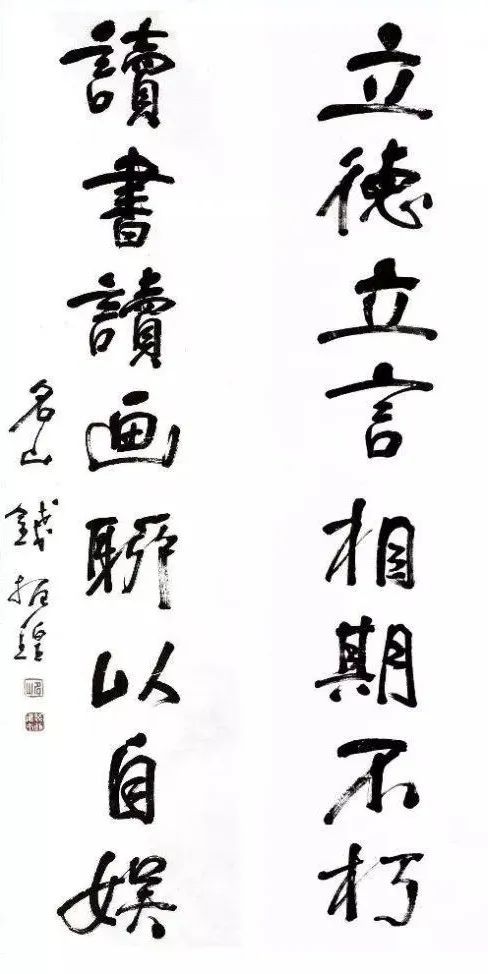 立德立言相期不朽
讀書讀画聊以自娱
名山錢振鍠